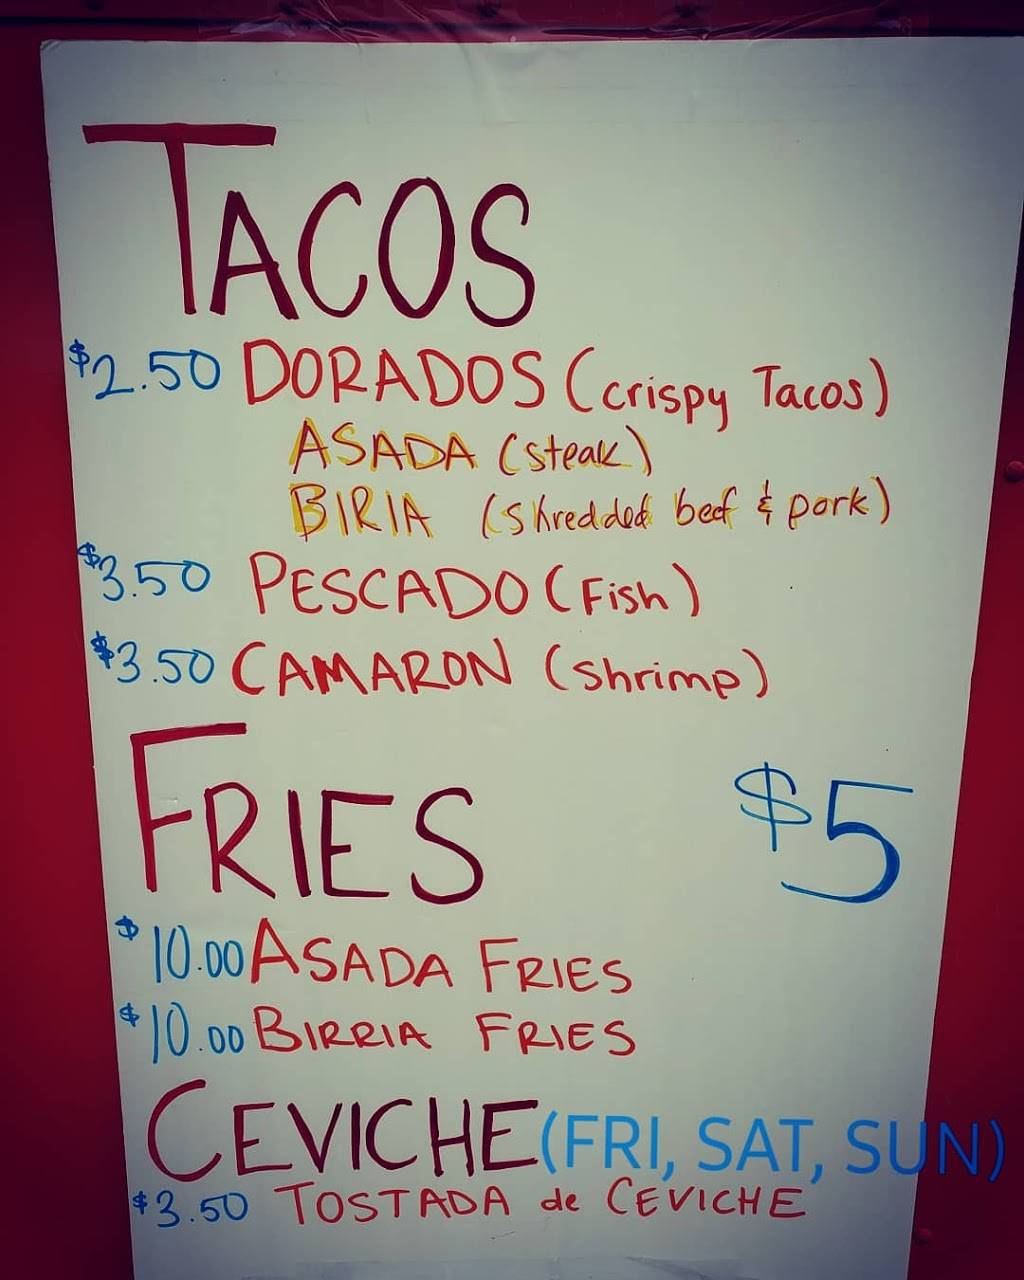 TACOS
$2.50 DORADOS (crispy Tacos)
ASADA (steak)
BIRIA (shredded beef & pork)
$3.50 PESCADO (Fish)
$3.50 CAMARON (shrimp)
FRIES $5
$10.00 ASADA FRIES
$10.00 BIRRIA FRIES
CEVICHE (FRI, SAT, SUN)
$3.50 TOSTADA de CEVICHE